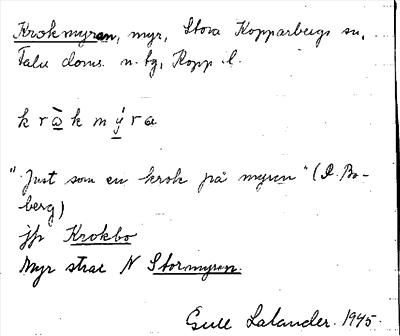 Krokmyran, myr, Stora Kopparbergs sn,
Falu doms. n. tg, Kopp. l.
k r ὼ̲ k m ý̲ r a
"Just som en krok på myren" (P. Bo-
berg)
jfr Krokbo
Myr strax N Stormyren.
Lalander. 1945.